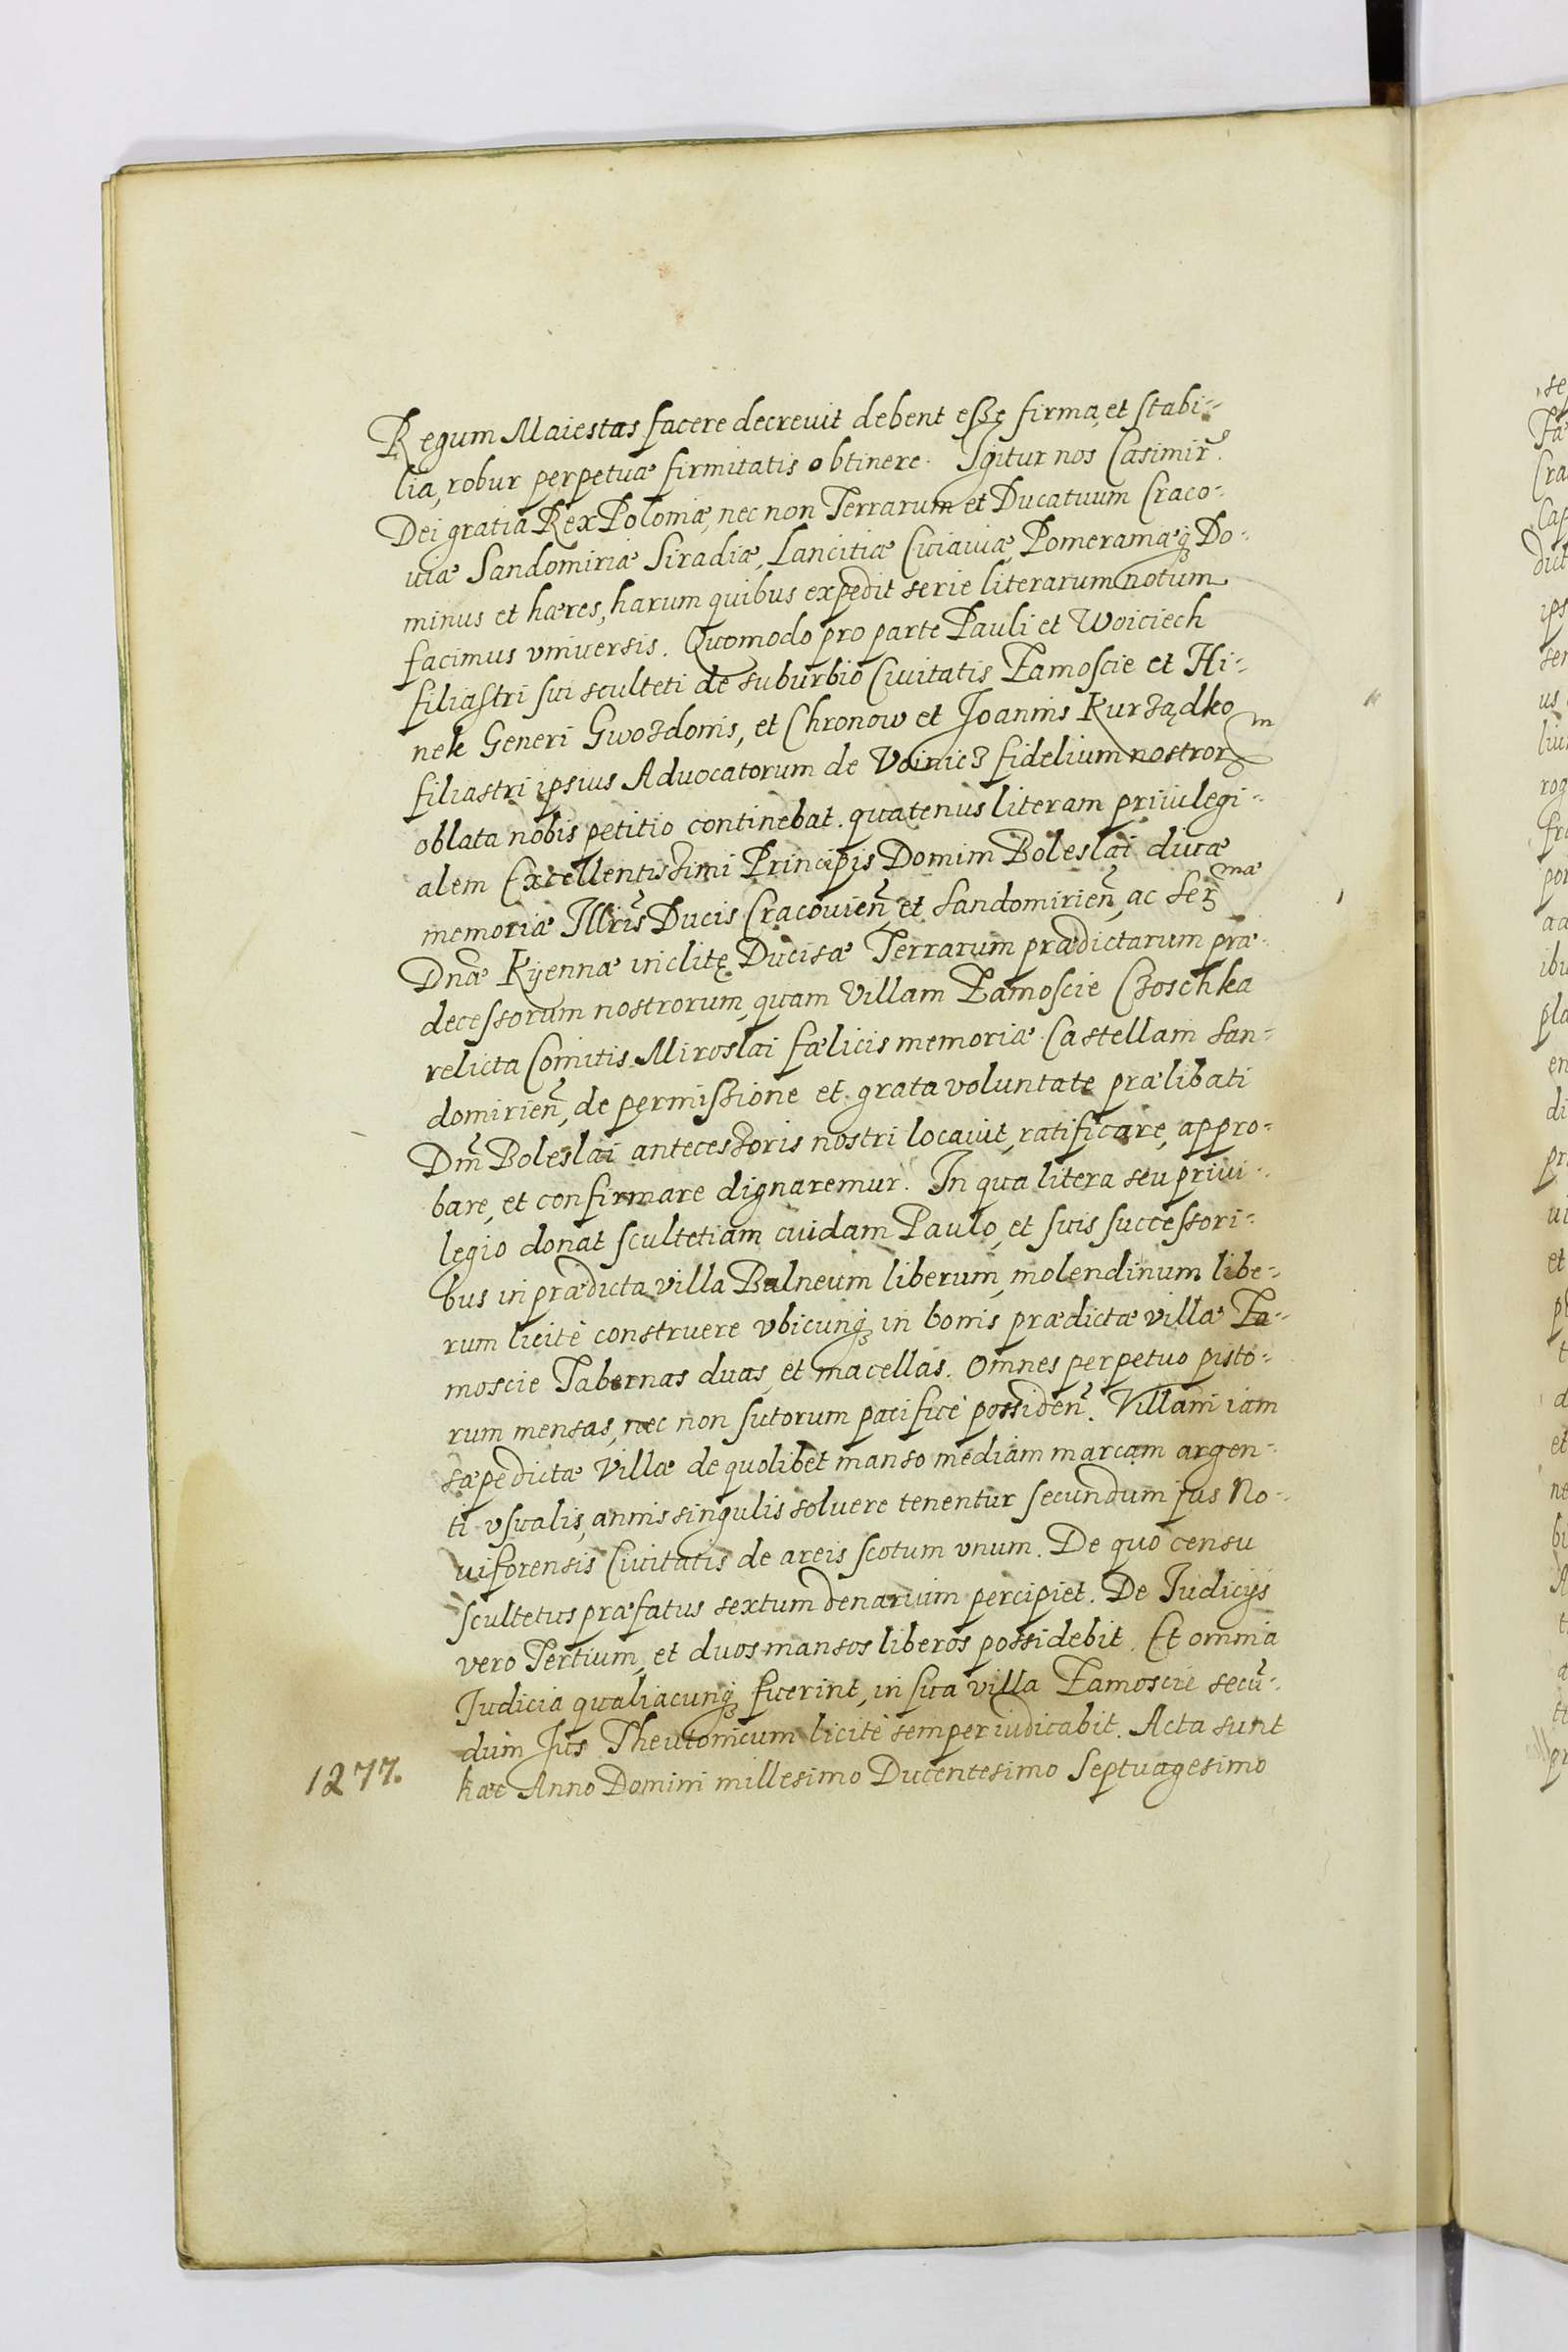 Regum Maiestas facere decrevit debent eßę firma, et stabi-
lia, robur perpetuæ firmitatis obtinere. Igitur nos Casimir9.
Dei gratia Rex Poloniæ, nec non Terrarum et Ducatuum Craco-
uiæ Sandomiriæ Siradiæ, Lancitiæ Cuiauiæ, Pomeraniæq3 Do-
minus et hæres, harum quibus expedit serie literarum notum
facimus vniuersis. Quomodo pro parte Pauli et Woiciech
filiastri sui sculteti de suburbio Ciuitatis Zamoscie et Hi-
nek Generi Gwozdonis, et Chronow et Joannis Kurządko
filiastri ipsius Advocatorum de Voinicz fidelium nostror̃ m
oblata nobis petitio continebat. quatenus literam priuilegi-
alem Excellentissimi Principis Domini Boleslai ducæ
memoriæ Illris̃ Ducis Cracouieñ, et Sandomirieñ, ac Ser̃mæ
Dnæ Kyennæ inclitę Ducisæ Terrarum prædictarum præ-
decessorum nostrorum, quam Villam Zamoscie Czoschka
relicta Comitis Miroslai fælicis memoriæ Castellani San-
domirieñ, de permissione et grata voluntate prælibati
Dñi Boleslai antecessoris nostri locauit, ratificare, appro-
bare, et confirmare dignaremur. In qua litera seu priui-
legio donat scultetiam cuidam Paulo, et suis successori-
bus in prædicta villa Balneum liberum, molendinum libe-
rum licitè construere vbicunq3 in bonis prædictæ villæ Za-
moscie Tabernas duas, et macellas. Omnes perpetuo pisto-
rum mensas, nec non sutorum pacificè possideñ. Villani iam
sæpedictæ Villæ de quolibet manso mediam marcam argen-
ti vsualis, annis singulis soluere tenentur secundum jus No-
uiforensis Ciuitatis de areis scotum vnum. De quo censu
scultetus præfatus sextum denarium percipiet. De Judicijs
vero Tertium, et duos mansos liberos possidebit. Et omnia
Judicia qualiacunq3 fuerint, in sua villa Zamoscie secũ-
dum Jus Theutonicum licitè semper iudicabit. Acta sunt
1277. hæc Anno Domini millesimo Ducentesimo Septuagesimo